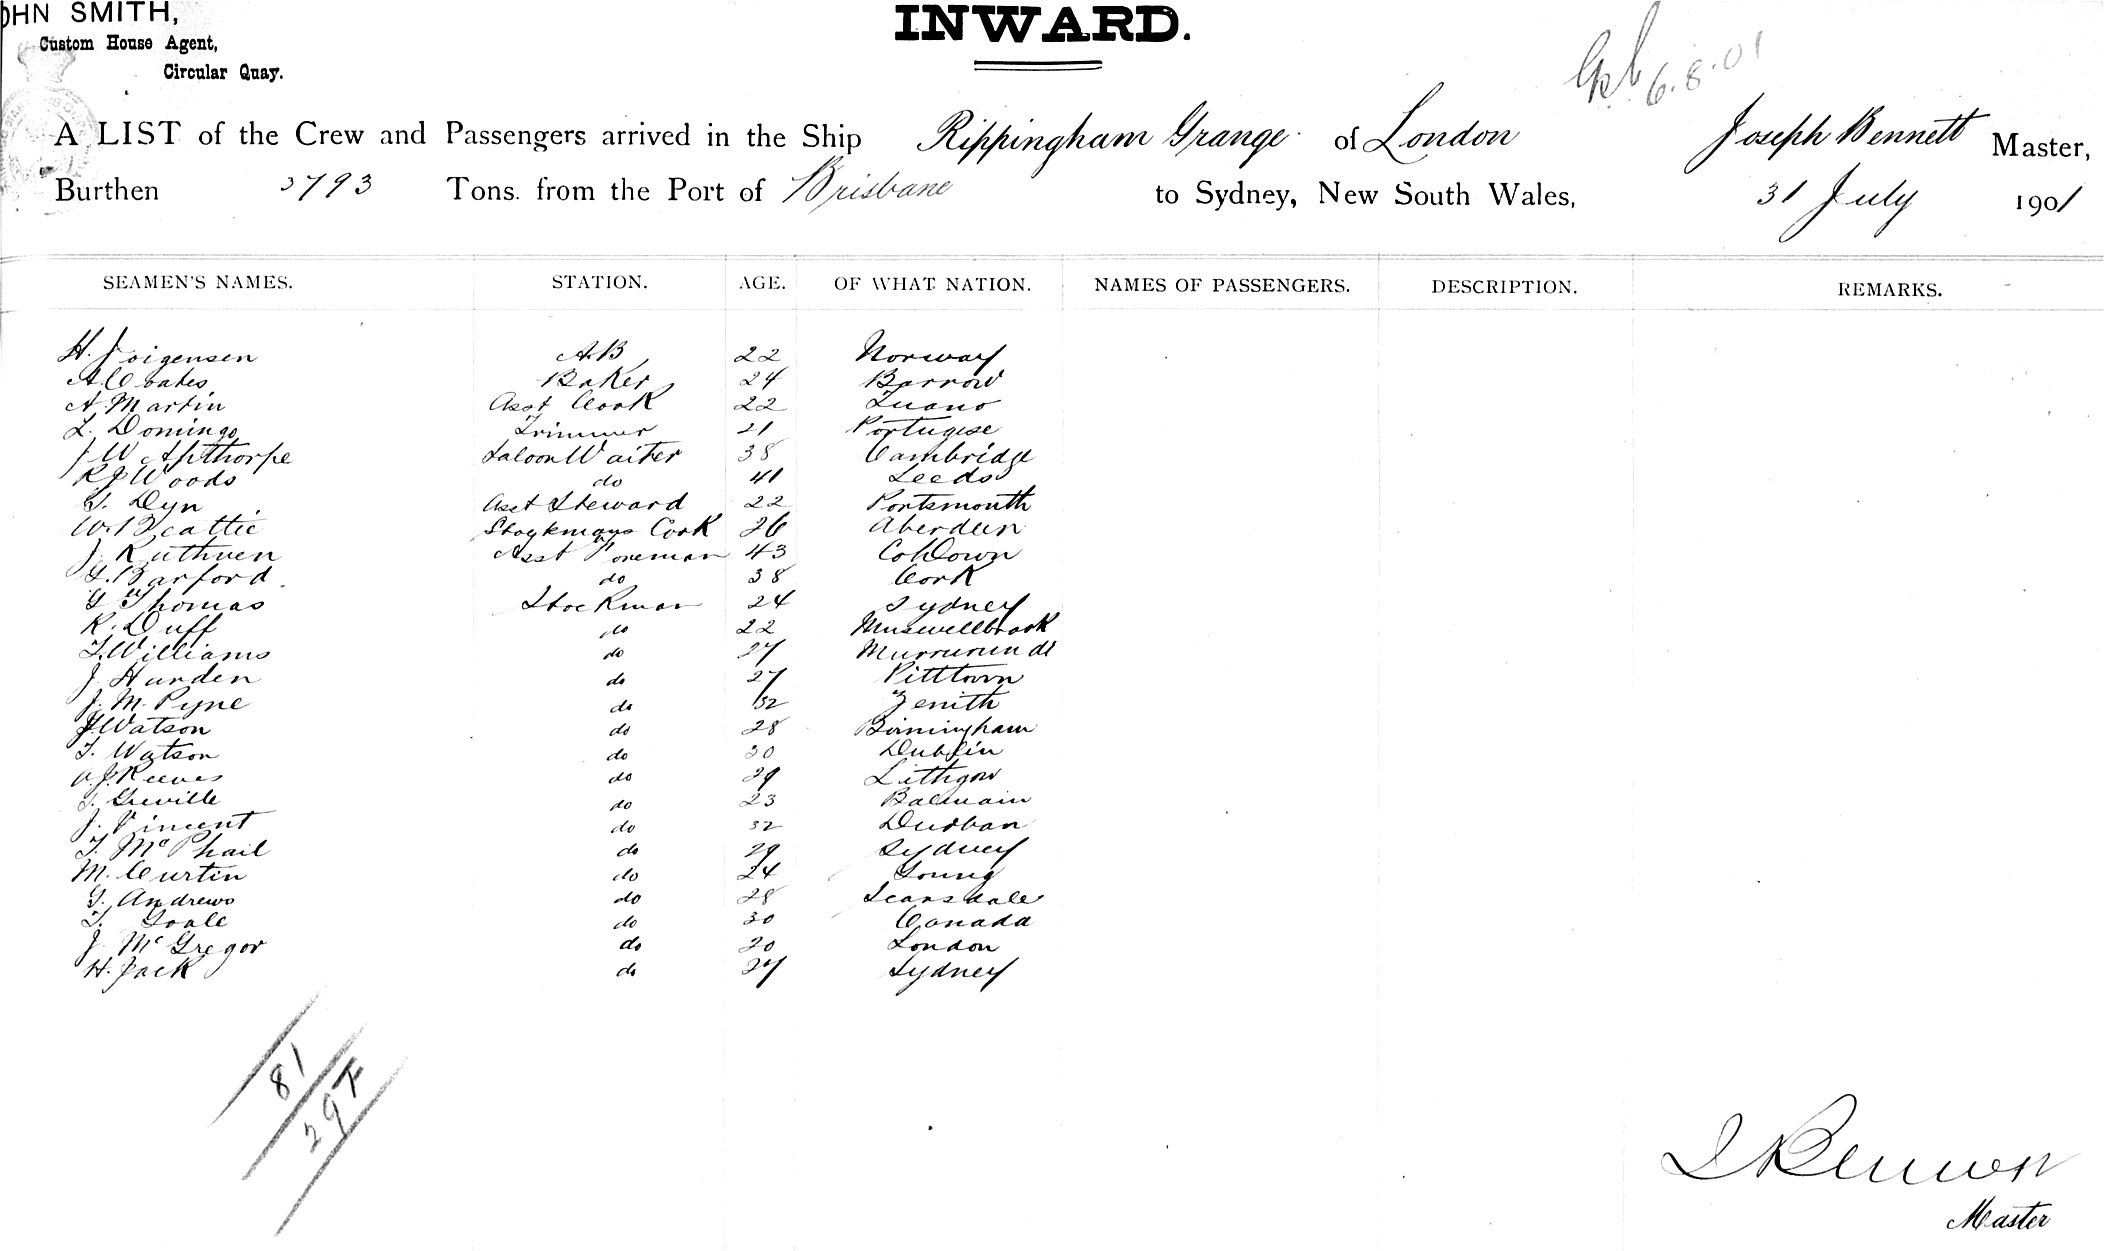 OHN SMITH,
Custom House Agent,
Circular Quay.
INWARD.
6.8.01
A LIST of the Crew and Passengers arrived in the Ship Rippingham Grange of London Joseph Bennett Master,
Burthen 5793 Tons from the Port of Brisbane to Sydney, New South Wales, 31 July 1901
SEAMEN'S NAMES. STATION. AGE. OF WHAT NATION. NAMES OF PASSENGERS. DESCRIPTION. REMARKS.
H. Jorgensen AB 22 Norway
A. Coates Baker 24 Barrow
A. Martin Asst Cook 22
L. Domingo Trimmer 21 Portugese
J W Apthorpe Saloon Waiter 38 Cambridge
R J Woods do 41 Leeds
G. Dyn Asst Steward 22 Portsmouth
W. Beattie Cook 26 Aberdeen
J. Ruthven Asst Foreman 43 Co Down
G. Barford do 38 Cork
G Thomas Stockman 24 Sydney
R. Duff do 22 Muswellbrook
T. Williams do 27 Murrurundi
J. Harden do 27 Pitttown
J. M. Pyne do 32 Zenith
J Watson do 28 Birmingham
T. Watson do 30 Dublin
A. J. Reeves do 29 Lithgow
G. Greville do 23 Balmain
J. Vincent do 32 Durban
T. McPhail do 29 Sydney
M. Curtin do 24 Young
G. Andrews do 28
T. do 30 Canada
J. McGregor do 20 London
H. Jack do 27 Sydney
81
29 F
J Bennett
Master